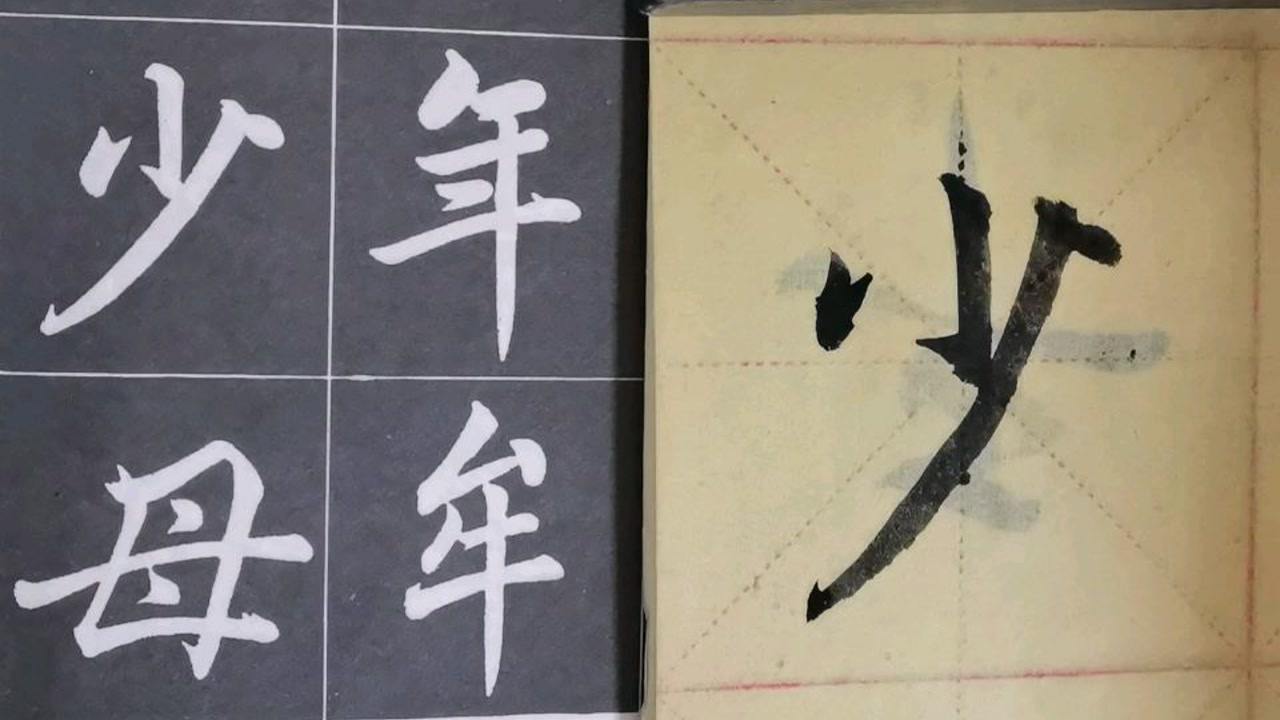 少年
母牟
少